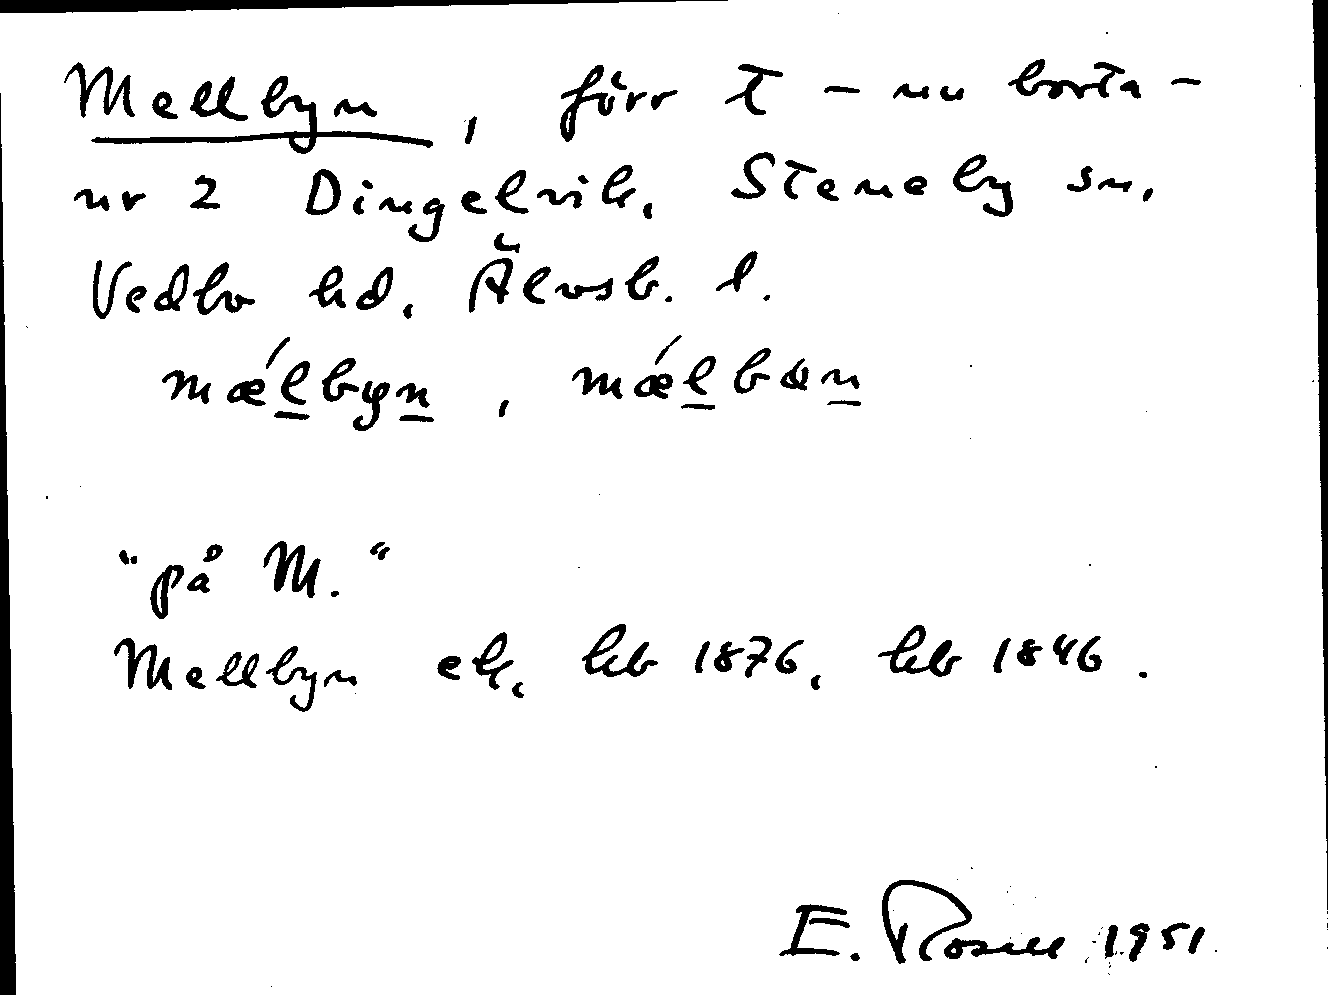 Mellbyn, förr t – nu borta –
nr 2 Dingelvik, Steneby sn,
Vedbo hd, Älvsb. l.
mǽlbyn, mǽlbøn
"på M."
Mellbyn ek, hb 1876, hb 1846.
E. Rosell 1951